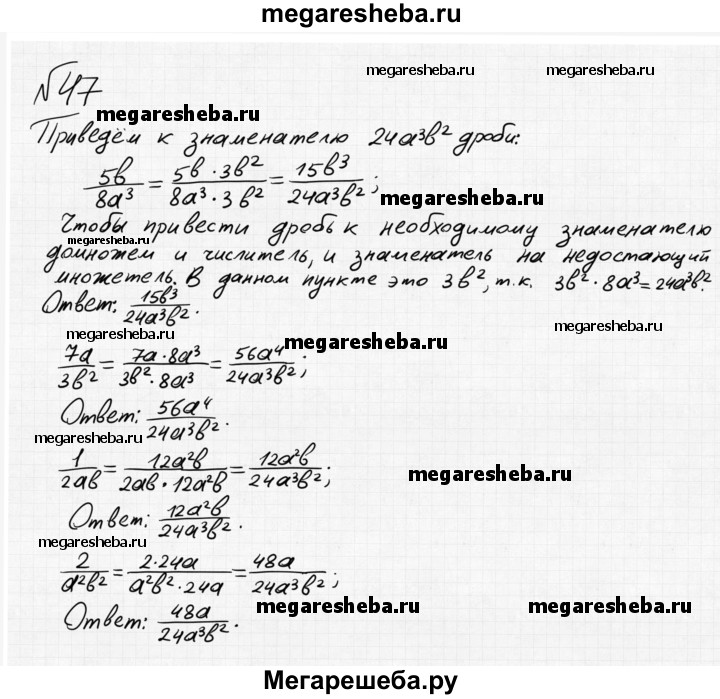 megaresheba.ru
№47
megaresheba.ru megaresheba.ru
megaresheba.ru
Приведём к знаменателю 24a³b² дроби:
5b/8a³ = 5b·3b²/8a³·3b² = 15b³/24a³b²;
megaresheba.ru
Чтобы привести дробь к необходимому знаменателю
megaresheba.ru
домножем и числитель, и знаменатель на недостающий
множетель. В данном пункте это 3b², т.к. 3b²·8a³=24a³b².
Ответ: 15b³/24a³b².
megaresheba.ru
megaresheba.ru
7a/3b² = 7a·8a³/3b²·8a³ = 56a⁴/24a³b²;
Ответ: 56a⁴/24a³b².
megaresheba.ru
1/2ab = 12a²b/2ab·12a²b = 12a²b/24a³b²;
megaresheba.ru
Ответ: 12a²b/24a³b².
megaresheba.ru
2/a²b² = 2·24a/a²b²·24a = 48a/24a³b²;
megaresheba.ru megaresheba.ru
Ответ: 48a/24a³b².
Мегарешеба.ру